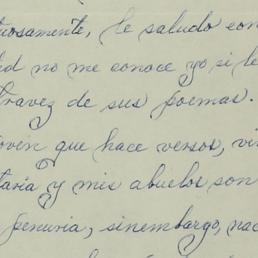 tuosamente, le saludo con
d no me conoce yo si le
travez de sus poemas.
oven que hace versos, vi
taria y mis abuelos son
penuria, sinembargo, nac